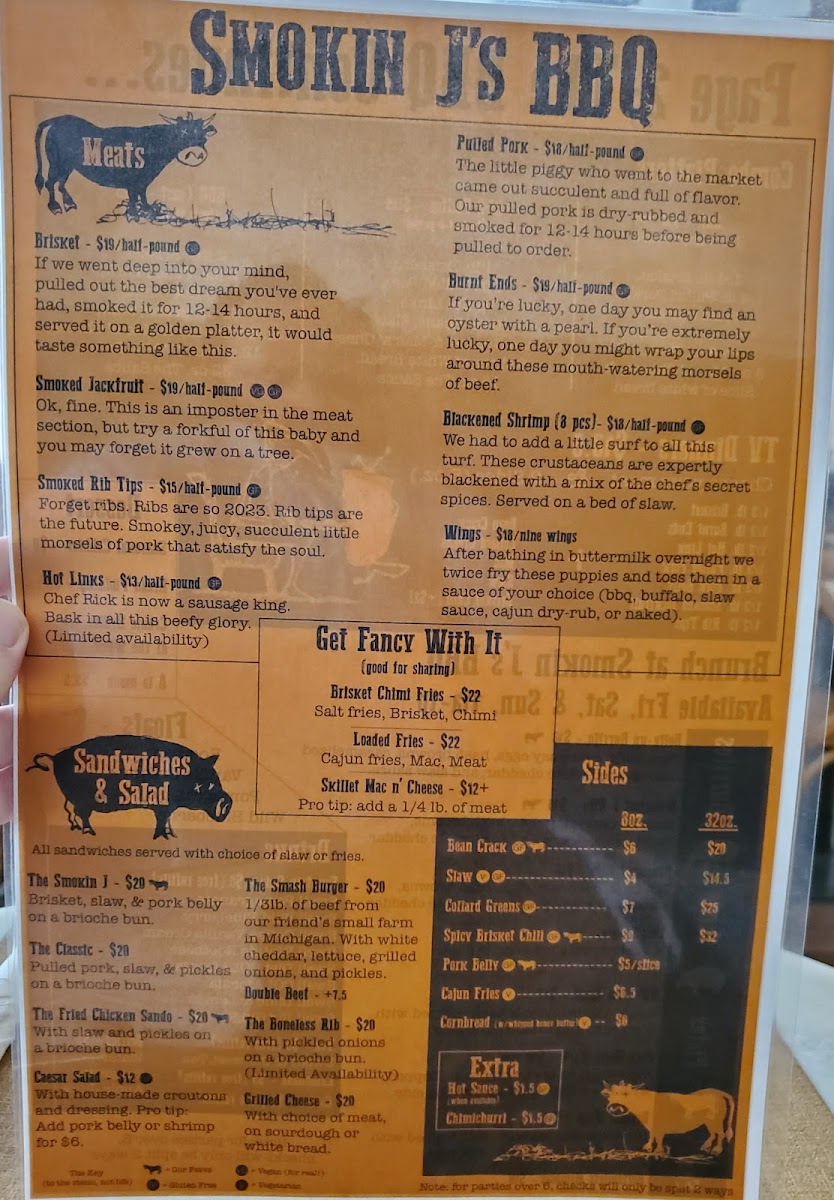 SMOKIN J'S BBQ
Meats
Brisket - $19/half-pound GF
If we went deep into your mind,
pulled out the best dream you've ever
had, smoked it for 12-14 hours, and
served it on a golden platter, it would
taste something like this.
Smoked Jackfruit - $19/half-pound VG GF
Ok, fine. This is an imposter in the meat
section, but try a forkful of this baby and
you may forget it grew on a tree.
Smoked Rib Tips - $15/half-pound GF
Forget ribs. Ribs are so 2023. Rib tips are
the future. Smokey, juicy, succulent little
morsels of pork that satisfy the soul.
Hot Links - $13/half-pound GF
Chef Rick is now a sausage king.
Bask in all this beefy glory.
(Limited availability)
Pulled Pork - $18/half-pound GF
The little piggy who went to the market
came out succulent and full of flavor.
Our pulled pork is dry-rubbed and
smoked for 12-14 hours before being
pulled to order.
Burnt Ends - $19/half-pound GF
If you're lucky, one day you may find an
oyster with a pearl. If you're extremely
lucky, one day you might wrap your lips
around these mouth-watering morsels
of beef.
Blackened Shrimp (8 pcs)- $18/half-pound GF
We had to add a little surf to all this
turf. These crustaceans are expertly
blackened with a mix of the chef's secret
spices. Served on a bed of slaw.
Wings - $18/nine wings
After bathing in buttermilk overnight we
twice fry these puppies and toss them in a
sauce of your choice (bbq, buffalo, slaw
sauce, cajun dry-rub, or naked).
Get Fancy With It
(good for sharing)
Brisket Chimi Fries - $22
Salt fries, Brisket, Chimi
Loaded Fries - $22
Cajun fries, Mac, Meat
Skillet Mac n' Cheese - $12+
Pro tip: add a 1/4 lb. of meat
Sandwiches
& Salad
All sandwiches served with choice of slaw or fries.
The Smokin J - $20
Brisket, slaw, & pork belly
on a brioche bun.
The Classic - $20
Pulled pork, slaw, & pickles
on a brioche bun.
The Fried Chicken Sando - $20
With slaw and pickles on
a brioche bun.
Caesar Salad - $12
With house-made croutons
and dressing. Pro tip:
Add pork belly or shrimp
for $6.
The Smash Burger - $20
1/3lb. of beef from
our friend's small farm
in Michigan. With white
cheddar, lettuce, grilled
onions, and pickles.
Double Beef - +7.5
The Boneless Rib - $20
With pickled onions
on a brioche bun.
(Limited Availability)
Grilled Cheese - $20
With choice of meat,
on sourdough or
white bread.
Sides
8oz. 32oz.
Bean Crack GF $6 $20
Slaw V GF $4 $14.5
Collard Greens GF $7 $25
Spicy Brisket Chili GF $9 $32
Pork Belly GF $5/slice
Cajun Fries V $6.5
Cornbread (w/whipped honey butter) V $6
Extra
Hot Sauce - $1.5 GF
(when available)
Chimichurri - $1.5 GF
The Key
(to the menu, not life)
= Our Faves
= Gluten Free
= Vegan (for real!)
= Vegetarian
Note: for parties over 6, checks will only be split 2 ways